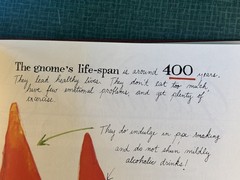 The gnome's life-span is around 400 years.
They lead healthy lives. They don't eat too much,
have few emotional problems, and get plenty of
exercise.
They do indulge in pipe smoking
and do not shun mildly
alcoholic drinks!